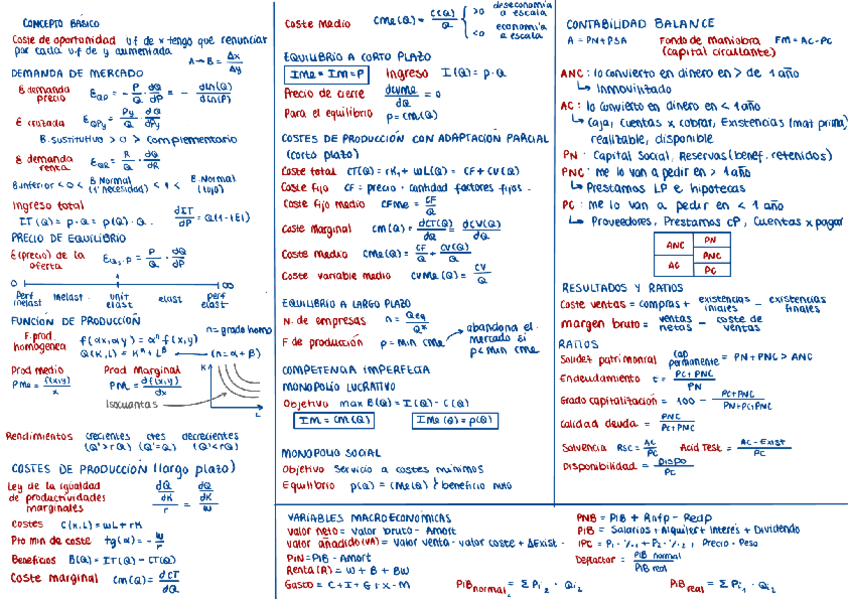 CONCEPTO BÁSICO
Coste de oportunidad uf de x tengo que renunciar
por cada uf de y aumentada
A→B = Δx/Δy
DEMANDA DE MERCADO
E demanda precio EQP = - P/Q · dQ/dP = - dln(Q)/dln(P)
E cruzada EQPy = Py/Q · dQ/dPy
B. sustitutivo > 0 > complementario
E demanda renta EQR = R/Q · dQ/dR
B.inferior < 0 < B.Normal (1ª necesidad) < 1 < B.Normal (lujo)
Ingreso total
IT(Q) = p·Q = p(Q)·Q dIT/dP = Q(1-|E|)
PRECIO DE EQUILIBRIO
E(precio) de la oferta EQs,P = P/Q · dQ/dP
0 1 ∞
Perf inelast inelast. unit elast elast perf elast
FUNCION DE PRODUCCIÓN
F.prod homogenea f(αx,αy) = αⁿ f(x,y) n=grado homo
Q(K,L) = Kᵅ + Lᵝ (n=α+β)
Prod medio Prod Marginal
PMe = f(x,y)/x PM = df(x,y)/dx
Isocuantas
K
L
Rendimientos crecientes ctes decrecientes
(Q'>rQ) (Q'=Q) (Q'<rQ)
COSTES DE PRODUCCIÓN (largo plazo)
Ley de la igualdad de productividades marginales dQ/dL / r = dQ/dK / w
Costes C(K,L) = wL + rK
Pto min de coste tg(α) = - w/r
Beneficios B(Q) = IT(Q) - CT(Q)
Coste marginal Cm(Q) = dCT/dQ
Coste medio CMe(Q) = C(Q)/Q { >0 deseconomía a escala
<0 economía a escala
EQUILIBRIO A CORTO PLAZO
IMe = IM = P Ingreso I(Q) = p·Q
Precio de cierre dCVMe/dQ = 0
Para el equilibrio p = CM(Q)
COSTES DE PRODUCCIÓN CON ADAPTACIÓN PARCIAL
(corto plazo)
Coste total CT(Q) = rK, + wL(Q) = CF + CV(Q)
Coste Fijo CF = precio · cantidad factores fijos
Coste fijo medio CFMe = CF/Q
Coste Marginal CM(Q) = dCT(Q)/dQ = dCV(Q)/dQ
Coste medio CMe(Q) = CF/Q + CV(Q)/Q
Coste variable medio CVMe(Q) = CV/Q
EQUILIBRIO A LARGO PLAZO
N. de empresas n = Qeq/Q*
F de producción p = min CMe → abandona el mercado si p< min CMe
COMPETENCIA IMPERFECTA
MONOPOLIO LUCRATIVO
Objetivo max B(Q) = I(Q) - C(Q)
IM = CM(Q) IMe(Q) = p(Q)
MONOPOLIO SOCIAL
Objetivo Servicio a costes mínimos
Equilibrio p(Q) = CMe(Q) } beneficio nulo
CONTABILIDAD BALANCE
A = PN + PSA Fondo de maniobra FM = AC-PC
(capital circulante)
ANC: lo convierto en dinero en > de 1 año
↳ Inmovilizado
AC: lo convierto en dinero en < 1 año
↳ Caja, Cuentas x cobrar, Existencias (mat prima)
realizable, disponible
PN: Capital Social, Reservas (benef. retenidos)
PNC: me lo van a pedir en > 1 año
↳ Prestamos LP e hipotecas
PC: me lo van a pedir en < 1 año
↳ Proveedores, Prestamos CP, Cuentas x pagar
ANC PN
PNC
AC PC
RESULTADOS Y RATIOS
Coste ventas = compras + existencias iniales - existencias finales
margen bruto = ventas netas - coste de ventas
RATIOS
Solidez patrimonial cap permanente = PN + PNC > ANC
Endeudamiento t = PC+PNC/PN
Grado capitalización = 100 - PC+PNC/PN+PC+PNC
Calidad deuda = PNC/PC+PNC
Solvencia RSC = AC/PC Acid Test = AC-Exist/PC
Disponibilidad = DISPO/PC
VARIABLES MACROECONÓMICAS
Valor neto = valor bruto - Amort
Valor añadido (VA) = Valor venta - valor coste + ΔExist
PIN = PIB - Amort
Renta (R) = W + B + BW
Gasto = C + I + G + X - M
PNB = PIB + Rnfp - Redp
PIB = Salarios + Alquiler + Interés + Dividendo
IPC = P1 · %1 + P2 · %2 , Precio · Peso
Deflactor = PIB normal/PIB real
PIB normal2 = Σ Pi2 · Qi2 PIB real = Σ Pi1 · Qi2